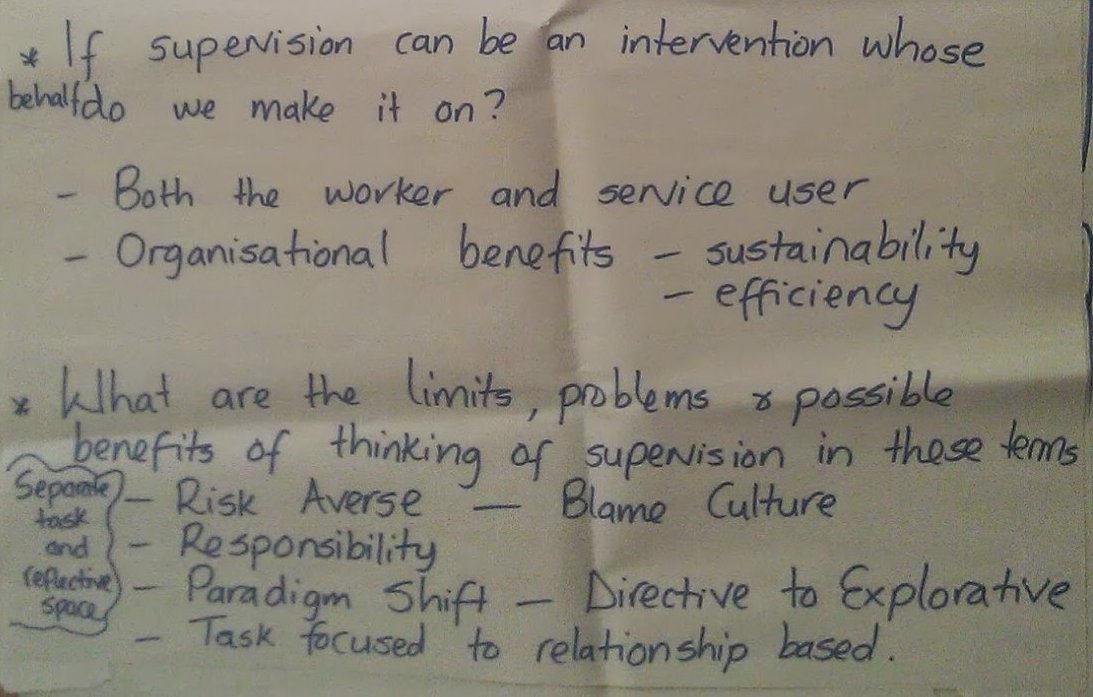 * If supervision can be an intervention whose
behalf do we make it on?
- Both the worker and service user
- Organisational benefits - sustainability
- efficiency
* What are the limits, problems & possible
benefits of thinking of supervision in these terms
- Risk Averse - Blame Culture
- Responsibility
- Paradigm Shift - Directive to Explorative
- Task focused to relationship based.
Separate
task
and
reflective
space